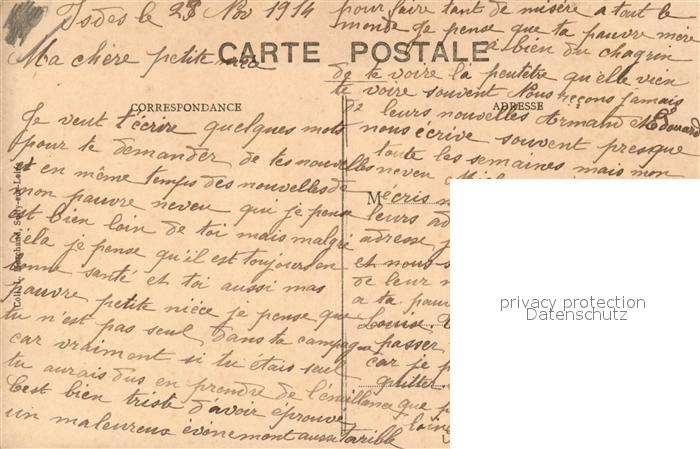 Isdes le 28 Nov 1914
Ma chère petite nièce
CARTE POSTALE
CORRESPONDANCE
Je veut t'écrire quelques mots
pour te demander de tes nouvelles
et en même temps des nouvelles de
mon pauvre neveu qui je pense
est bien loin de toi mais malgré
cela je pense qu'il est toujours en
bonne santé et toi aussi mas
pauvre petite nièce je pense que
tu n'est pas seul dans ta campagne
car vraiment si tu étais seul
tu aurais dus en prendre de l'
C'est bien triste d'avoir éprouve
un maleureux événement aussi terrible
pour faire tant de misère a tout le
monde Je pense que ta pauvre mère
a bien du chagrin
de te voire là peutetre qu'elle vien
te voire souvent Nous reçons jamais
de leurs nouvelles Armand Edouard
ADRESSE
nous écrive souvent presque
toute les semaines mais mon
neveu
M
écris
leurs
adresse
et nous
de leur
a ta
Louise.
passer
car je
quitter
que
loin
privacy protection
Datenschutz